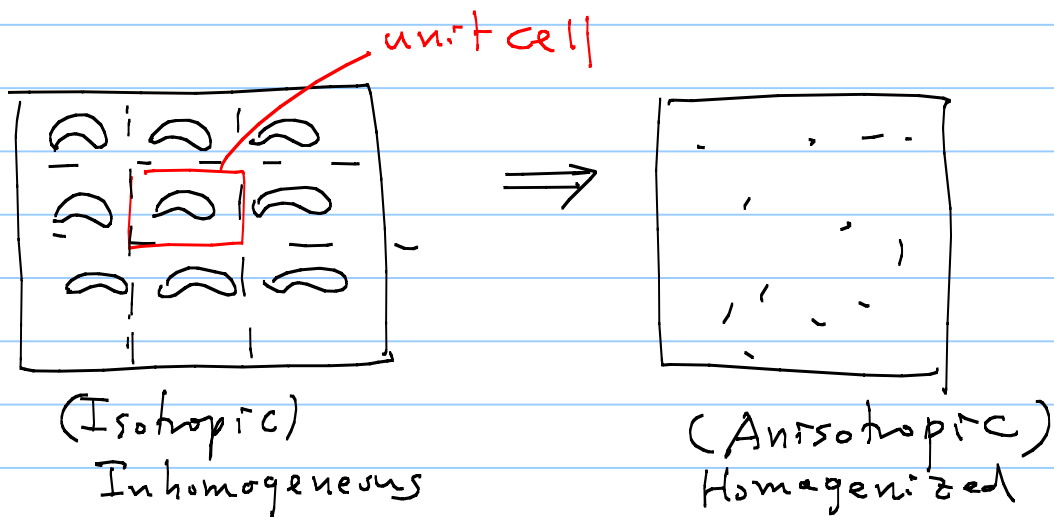 unit cell
(Isotropic)
Inhomogeneous
(Anisotropic)
Homogenized